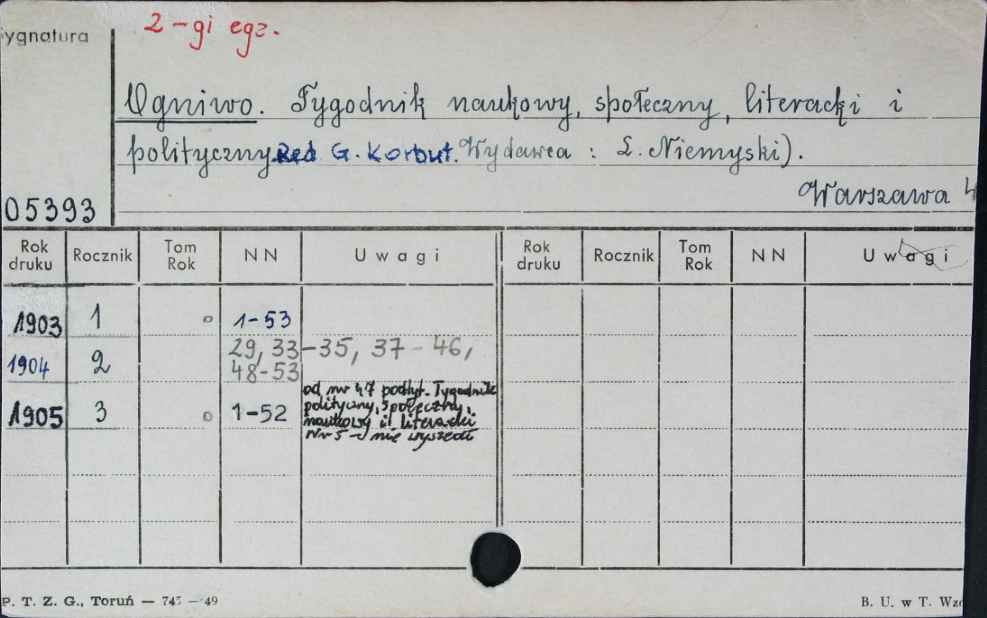 2-gi egz.
ygnatura
Ogniwo. Tygodnik naukowy, społeczny, literacki i
polityczny Red G. Korbut. Wydawca : L. Niemyski).
Warszawa 4
05393
Rok druku Rocznik Tom Rok NN Uwagi Rok druku Rocznik Tom Rok NN Uwagi
1903 1 o 1-53
1904 2 29, 33-35, 37-46,
48-53
1905 3 o 1-52 od nr 47 podtyt. Tygodnik
polityczny, społeczny,
naukowy i literacki
Nr 5 - nie wyszedł
P. T. Z. G., Toruń — 743 — 49
B. U. w T. Wzó